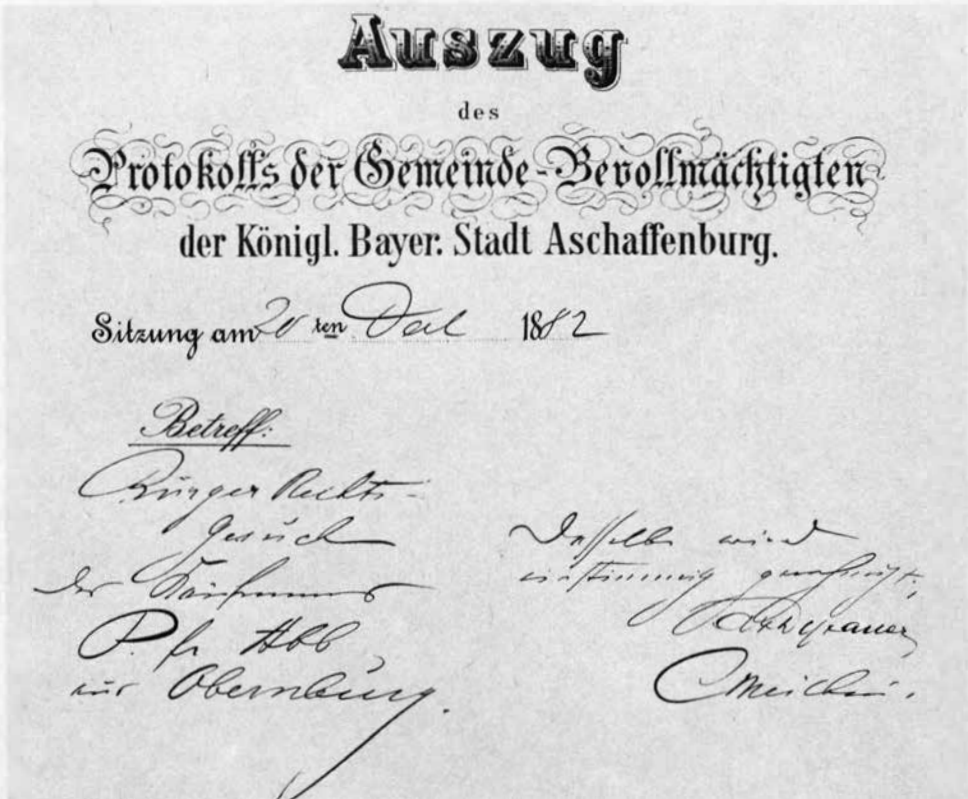 Auszug
des
Protokolls der Gemeinde-Bevollmächtigten
der Königl. Bayer. Stadt Aschaffenburg.
Sitzung am 20 ten 1882
Betreff:
Bürger Rechts-
Gesuch
des Kaufmanns
P. fr Abb
aus Obernburg.
Dasselbe wird
einstimmig genehmigt.